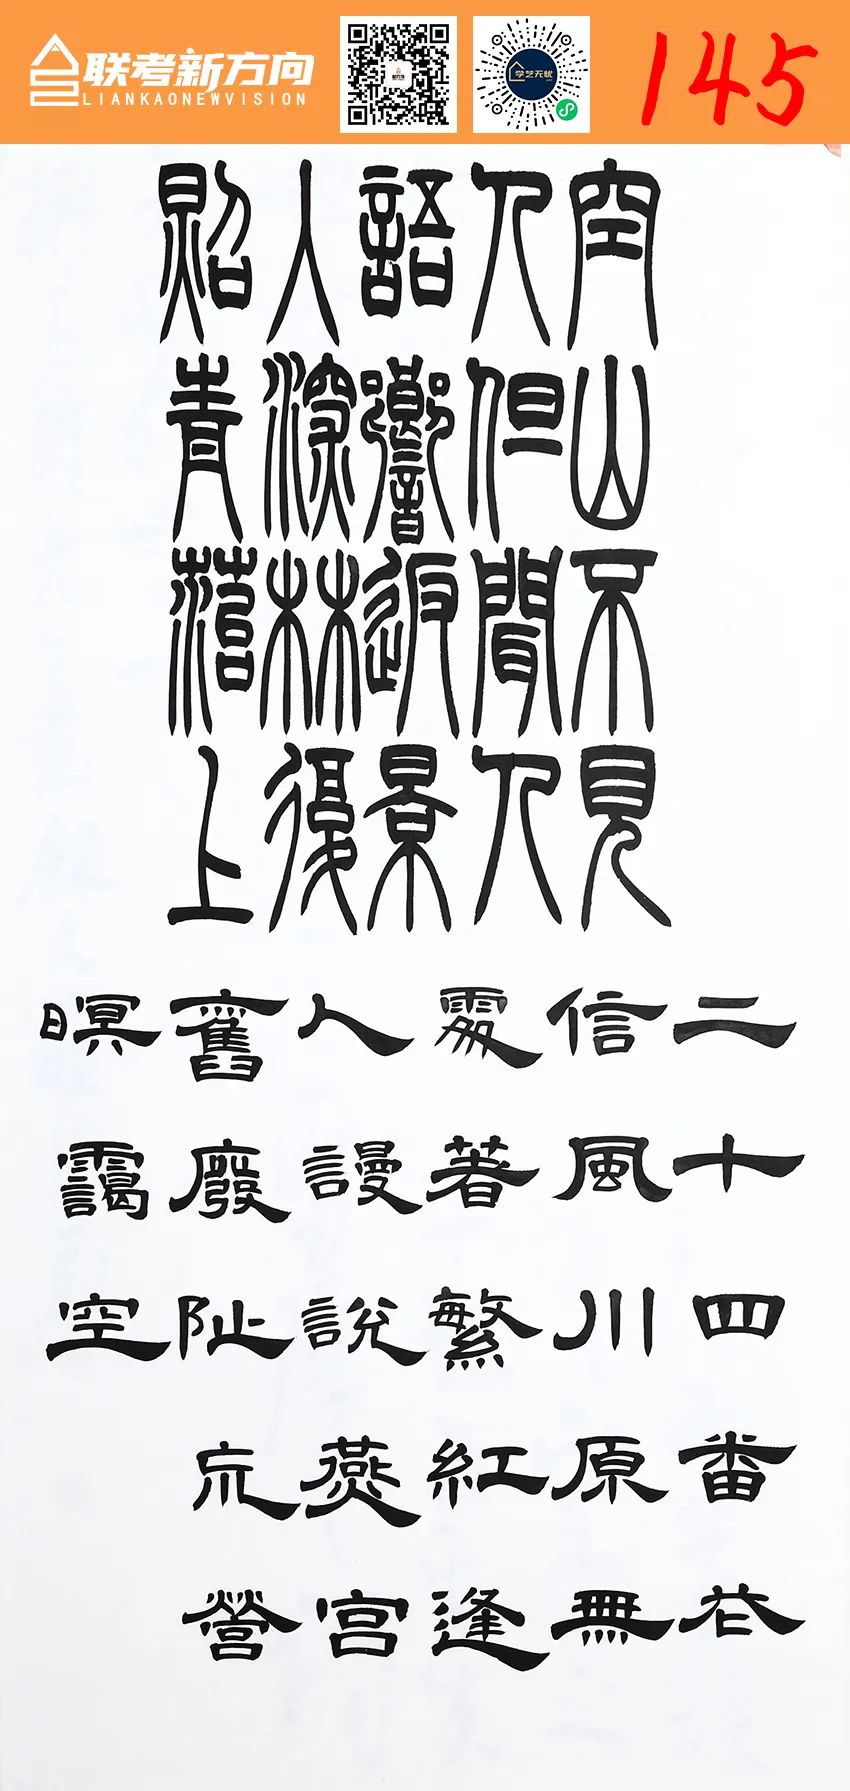 联考新方向
LIANKAONEWVISION
学艺无忧
145
空山不見
人但聞人
語響返景
入深林復
照青苔上
二十四番花
信風川原無
處著繁紅逢
人謾說燕宮
舊廢阯荒營
暝靄空